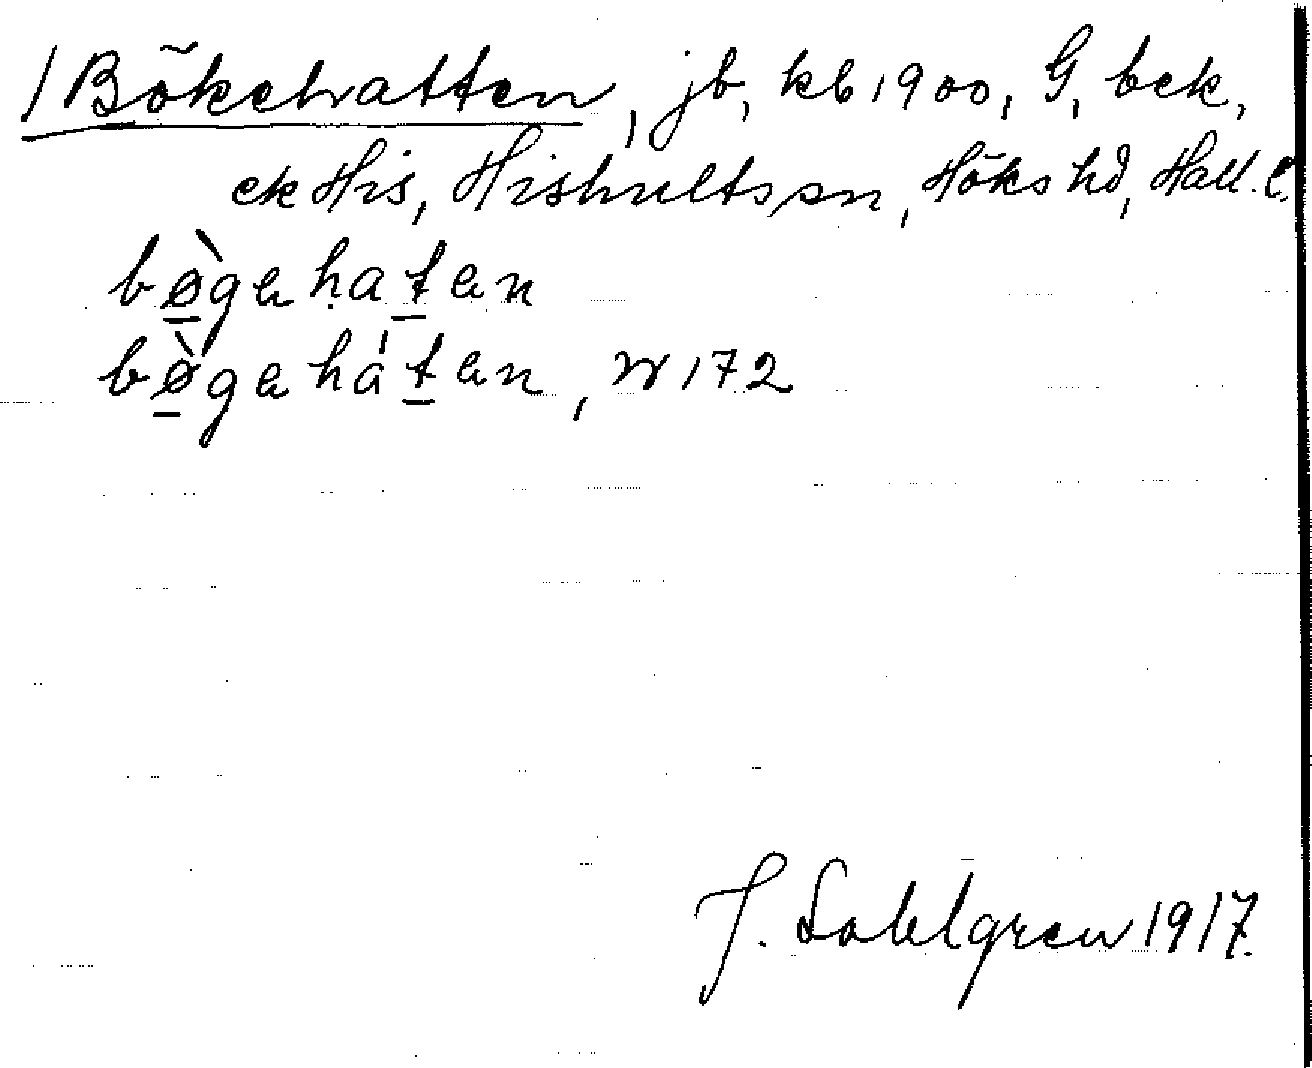 /Bökehatten, jb, kb 1900, G, bek,
ek His, Hishults sn, Höks hd, Hall. l.
bø̲̀gahaṯan
bø̲̀gahàṯan, W 172
J. Sahlgren 1917.